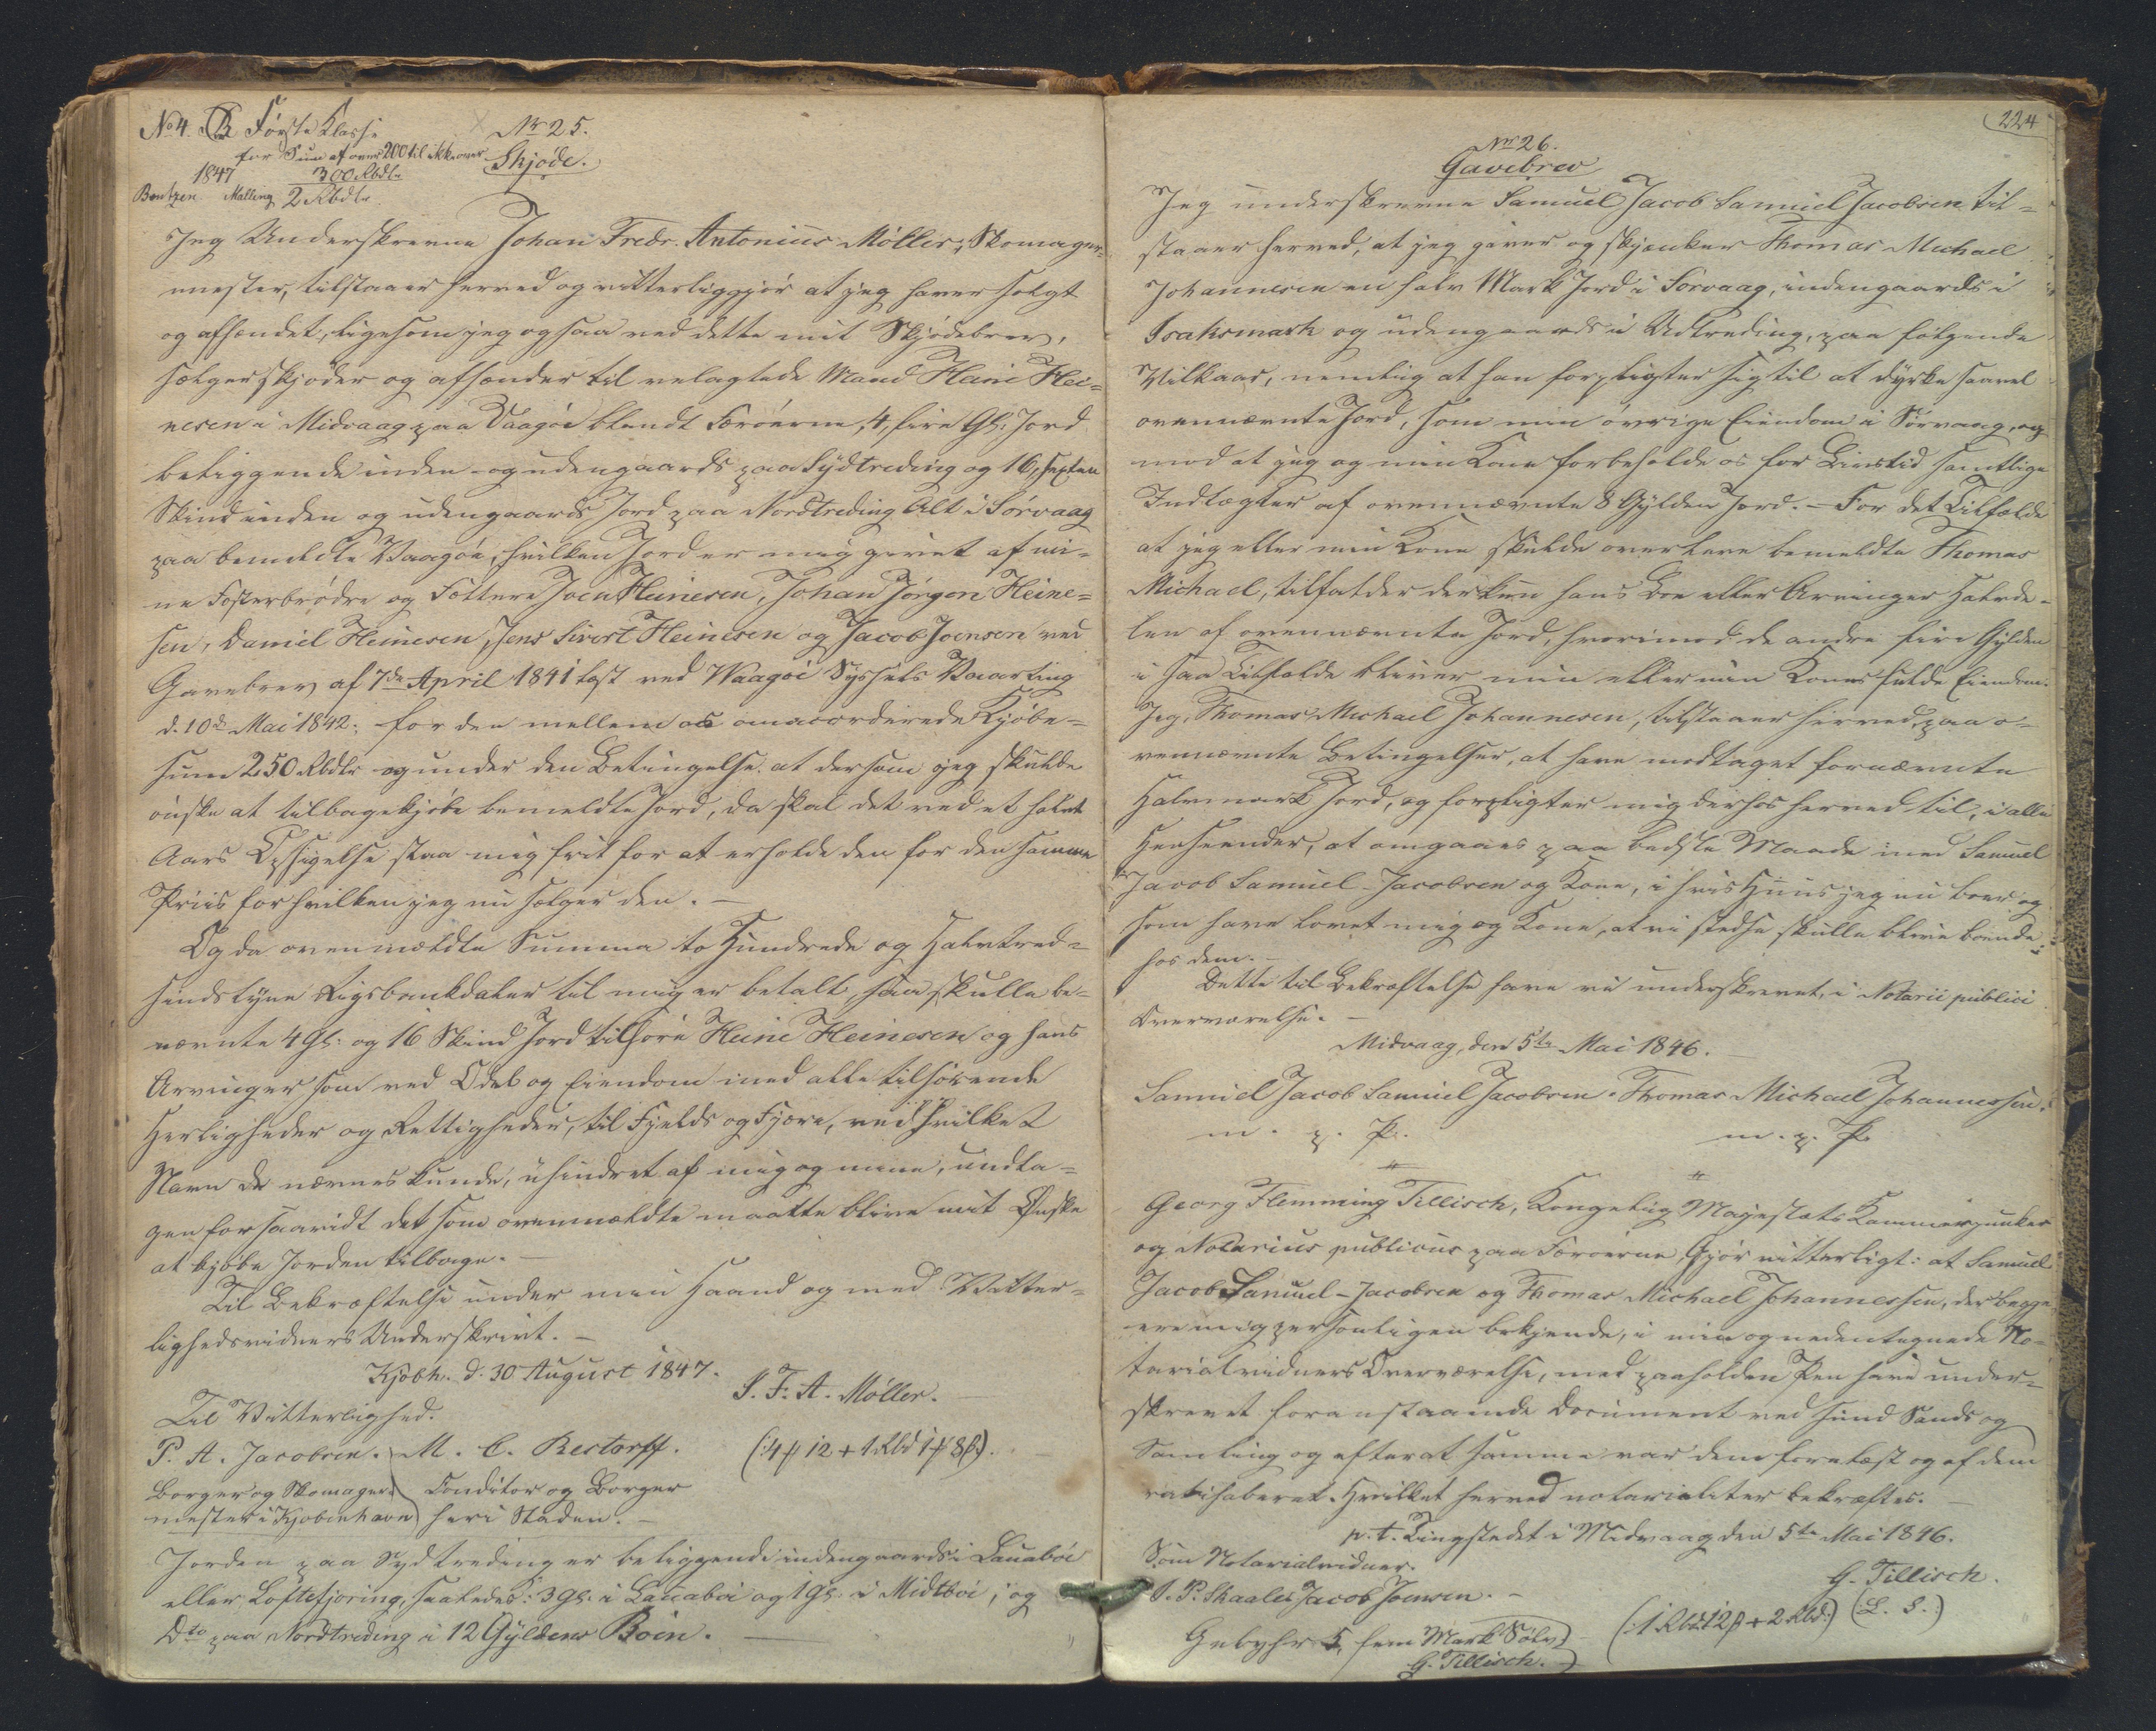 No 4. R Første Klasse
for Sum af over 200 til ikke over
1847 300 Rbdlr
Bentzen Malling 2 Rbdlr.
Nr 25.
Skjøde.
Jeg Underskrevne Johan Fredr. Antonius Møller, Skomager-
mester, tilstaaer herved og vitterliggjør at jeg haver solgt
og afhændet, ligesom jeg ogsaa ved dette mit Skjødebrev,
sælger skjøder og afhænder til velagtede Mand Heine Hei-
nesen i Midvaag paa Vaagøe blandt Færøerne, 4, fire Gl: Jord
beliggende inden- og udengaards paa Sydtreding og 16, sexten
Skind inden og udengaards Jord paa Nordtreding Alt i Sørvaag
paa bemeldte Vaagøe, hvilken Jord er mig givet af mi-
ne Fosterbrødre og Fættere Joen Heinesen, Johan Jørgen Heine-
sen, Daniel Heinesen, Jens Sivert Heinesen og Jacob Joensen ved
Gavebrev af 7de April 1841 læst ved Waagøe Syssels Vaarting
d. 10de Mai 1842; for den mellem os omaccorderede Kjøbe-
sum 250 Rbdlr og under den Betingelse at dersom jeg skulde
ønske at tilbagekjøbe bemeldte Jord, da skal det ved et halvt
Aars Opsigelse staa mig frit for at erholde den for den samme
Priis for hvilken jeg nu sælger den. —
Og da ovenmældte Summa to Hundrede og Halvtred-
sindstyve Rigsbankdaler til mig er betalt, saa skulle be-
nævnte 4 Gl: og 16 Skind Jord tilhøre Heine Heinesen og hans
Arvinger som ved Odel og Eiendom med alle tilhørende
Herligheder og Rettigheder, til Fjelds og Fjære, ved hvilket
Navn de nævnes kunde, uhindret af mig og mine, undta-
gen forsaavidt det som ovenmældte maatte blive mit Ønske
at kjøbe Jorden tilbage. —
Til Bekræftelse under min Haand og med Vitter-
lighedsvidners Underskrivt. —
Kjøbh. d: 30 August 1847.
J. F. A. Møller.
Til Vitterlighed.
P. A. Jacobsen. M. C. Restorff. (: 4 ß 12 + 1 Rbd 1 ß 8 ß:).
Borger og Skomager- Conditor og Borger
mester i Kjøbenhavn her i Staden. —
Jorden paa Sydtreding er beliggende indengaards i Lauabøe
eller Løftefjøring, saaledes: 3 Gl. i Lauabøe og 1 Gl. i Midtbøe; og
Do paa Nordtreding i 12 Gyldens Bøen. —
224
Nr 26.
Gavebrev
Jeg underskrevne Samuel Jacob Samuel Jacobsen til-
staaer herved, at jeg giver og skjænker Thomas Michael
Johannesen en halv Mark Jord i Sørvaag, indengaards i
Isaksmark og udengaards i Udtreding, paa følgende
Vilkaar, nemlig at han forpligter sig til at dyrke saavel
ovennævnte Jord, som min øvrige Eiendom i Sørvaag, og
mod at jeg og min Kone forbeholde os for Livstid samtlige
Indtægter af ovennævnte 8 Gylden Jord. — For det Tilfælde
at jeg eller min Kone skulde overleve bemeldte Thomas
Michael, tilfalder der kun hans Boe eller Arvinger Halvde-
len af ovennævnte Jord, hvorimod de andre fire Gylden
i saa Tilfælde bliver min eller min Kones fulde Eiendom.
Jeg, Thomas Michael Johannesen, tilstaaer herved, paa o-
vennævnte Betingelser, at have modtaget fornævnte
Halvmark Jord, og forpligter mig derhos herved til, i alle
Henseender, at omgaaes paa bedste Maade med Samuel
Jacob Samuel-Jacobsen og Kone, i hvis Huus jeg nu boer og
som have lovet mig og Kone, at vi stedse skulle blive boende
hos dem. —
Dette til Bekræftelse have vi underskrevet, i Notarii publici
Overværelse. —
Midvaag, den 5te Mai 1846. —
Samuel Jacob Samuel Jacobsen. Thomas Michael Johannessen.
m. p. P. m. p. P.
Georg Flemming Tillisch, Kongelig Majestæts Kammerjunker
og Notarius publicus paa Færøerne, Gjør vitterligt: at Samuel
Jacob Samuel-Jacobsen og Thomas Michael Johannessen, der begge
ere mig personligen bekjendte, i min og nedentegnede No-
tarialvidners Overværelse, med paaholden Pen have under-
skrevet foranstaaende Document ved sund Sands og
Samling og efterat samme var dem forelæst og af dem
ratihaberet. Hvilket herved notarialiter bekræftes. —
p. t. Tingstedet i Midvaag den 5te Mai 1846.
Som Notarialvidner. G. Tillisch.
J. P. Skaales Jacob Joensen. — (L. S.)
Gebyhr 5, fem Mark Sølv (: 1 Rbd 12 ß + 2 Rbd:)
G. Tillisch.